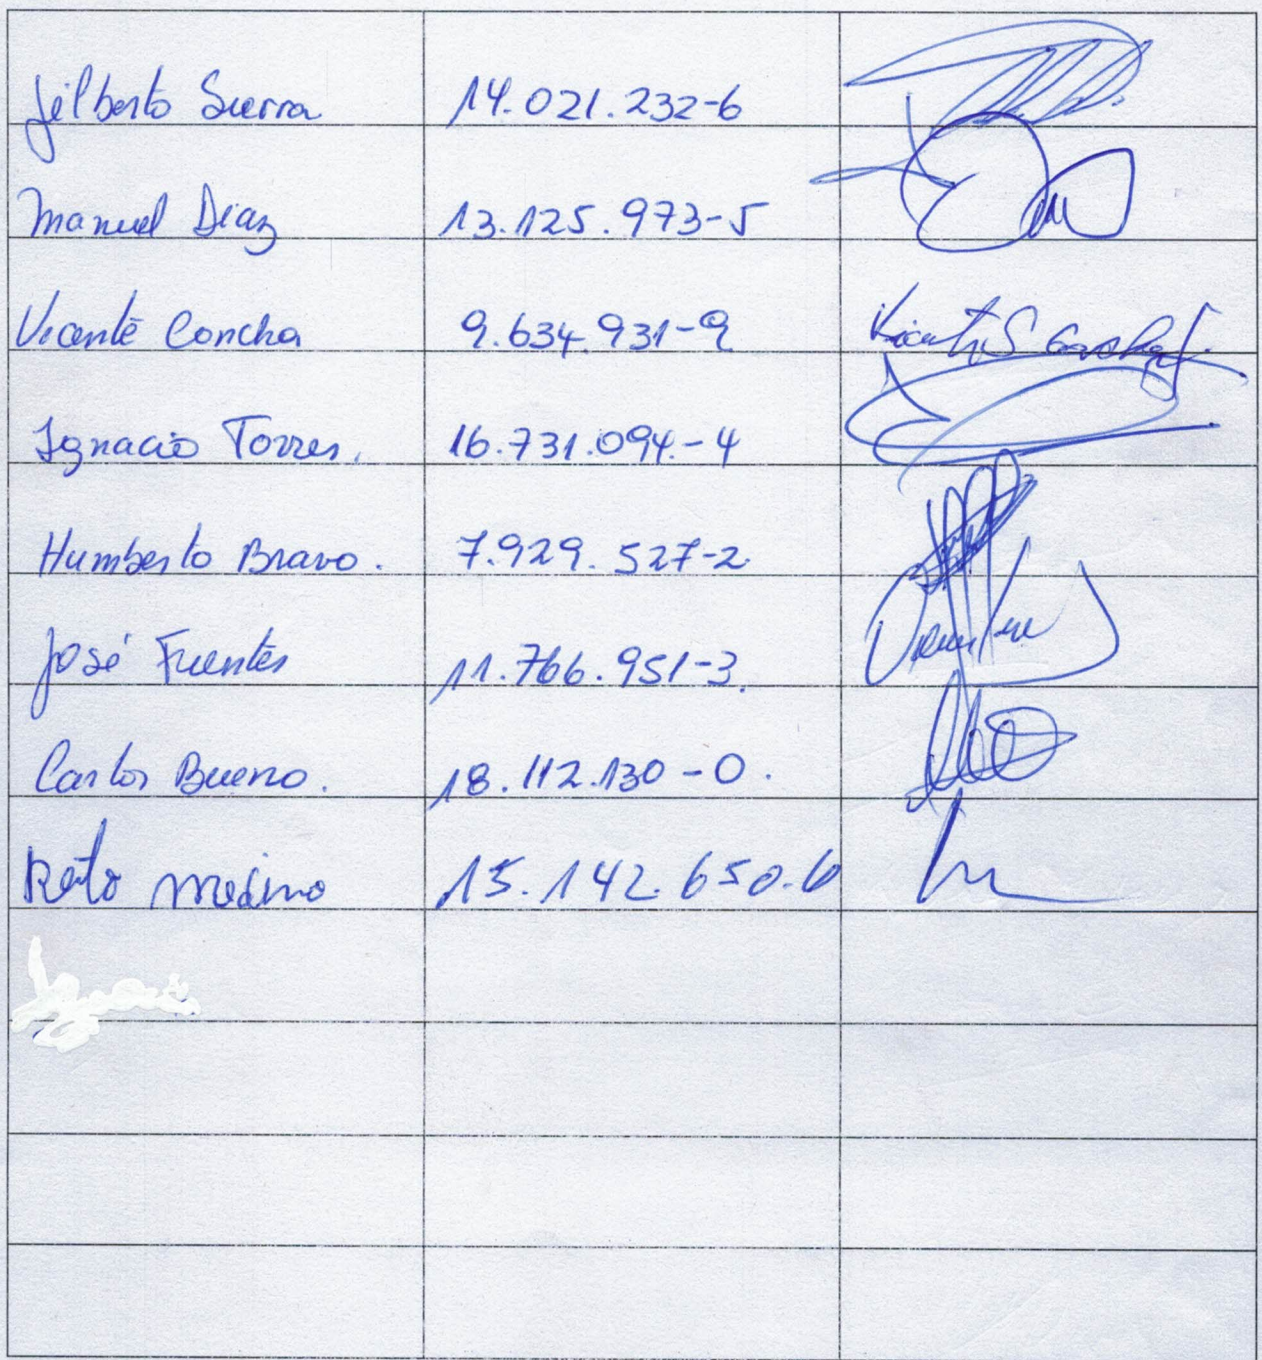 Jilberto Sierra 14.021.232-6
Manuel Diaz 13.125.973-5
Vicente Concha 9.634.931-9
Ignacio Torres. 16.731.094-4
Humberto Bravo. 7.929.527-2
José Fuentes 11.766.951-3.
Carlos Bueno. 18.112.130-0.
15.142.650.6